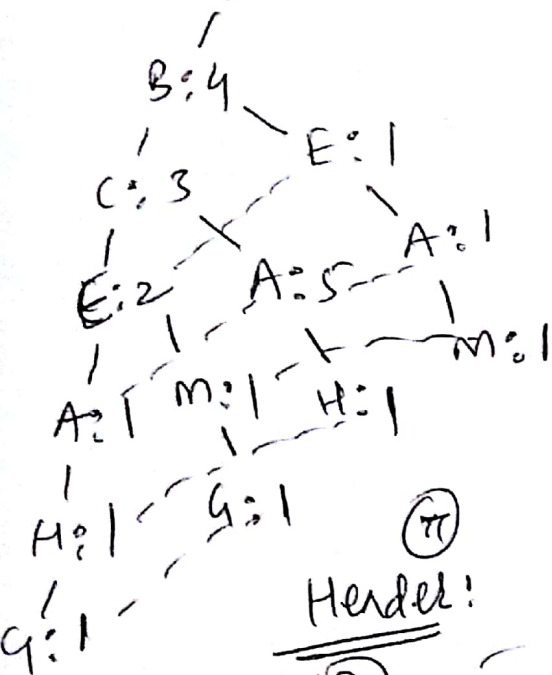 B:4
E:1
C:3
A:1
E:2
A:5
M:1
A:1
M:1
H:1
H:1
G:1
π
Header:
G:1